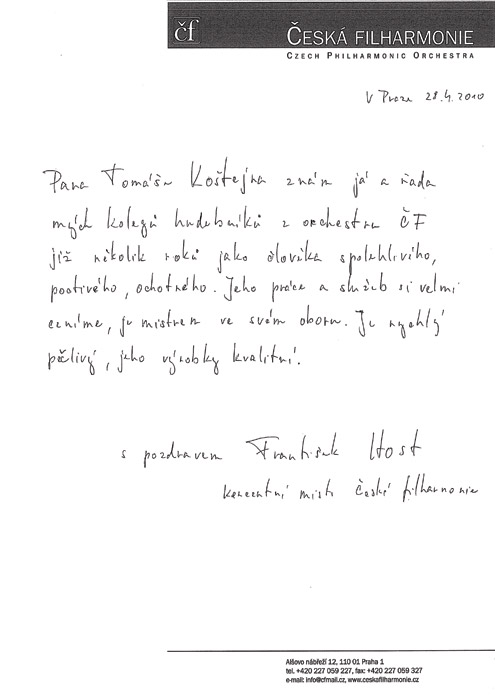 čf
ČESKÁ FILHARMONIE
CZECH PHILHARMONIC ORCHESTRA
V Praze 28.4.2010
Pana Tomáše Koštejna znám já a řada
mých kolegů hudebníků z orchestru ČF
již několik roků jako člověka spolehlivého,
poctivého, ochotného. Jeho práce a služeb si velmi
ceníme, je mistrem ve svém oboru. Je rychlý
pečlivý, jeho výrobky kvalitní.
s pozdravem František Host
koncertní mistr České filharmonie
Alšovo nábřeží 12, 110 01 Praha 1
tel. +420 227 059 227, fax: +420 227 059 327
e-mail: info@cfmail.cz, www.ceskafilharmonie.cz